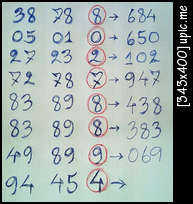 38 78 8 → 684
05 01 0 → 650
27 23 2 → 102
72 78 7 → 947
83 89 8 → 438
83 89 8 → 383
49 89 9 → 069
94 45 4 →
[343x400] upic.me